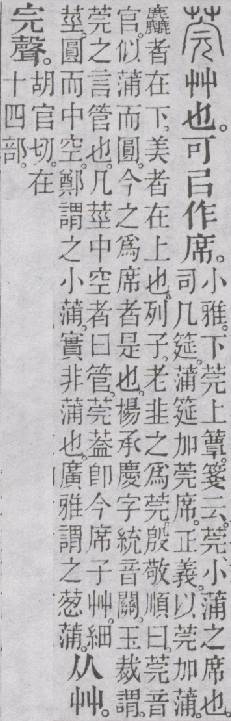 莞 艸也。可㠯作席。
小雅。下莞上簟。箋云。莞、小蒲之席也。
司几筵。蒲筵加莞席。正義。以莞加蒲。
麤者在下。美者在上也。列子。老韭之爲莞。殷敬順曰。莞音
官。似蒲而圓。今之爲席者是也。楊承慶字統音關。玉裁謂。
莞之言管也。凡莖中空者曰管。莞葢卽今席子艸。細
莖圓而中空。鄭謂之小蒲。實非蒲也。廣雅謂之葱蒲。
从艸。
完聲。
胡官切。在
十四部。